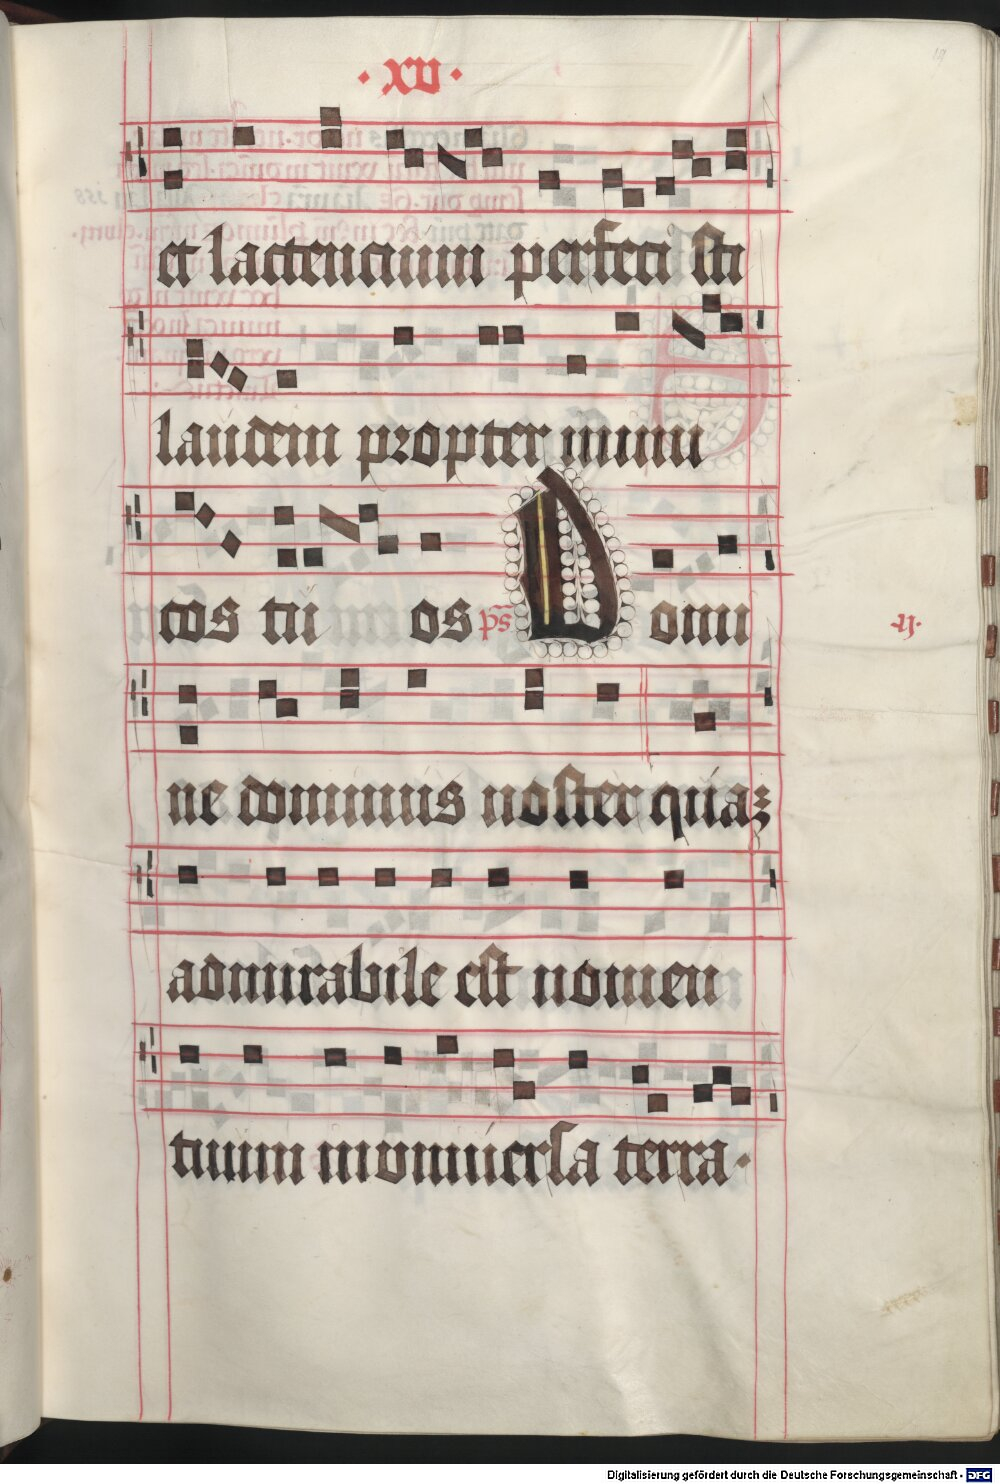 · xv ·
et lactencium perfeci sti
laudem propter inimi
cos tu os ps Domi
ne dominus noster quaz
admirabile est nomen
tuum in vniuersa terra ·
·ij·
Digitalisierung gefördert durch die Deutsche Forschungsgemeinschaft - DFG